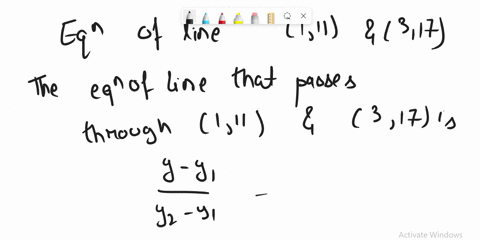 Eqⁿ of line (1,11) & (3,17)
The eqⁿ of line that passes
through (1,11) & (3,17) is
y - y₁
y₂ - y₁ =
Activate Windows